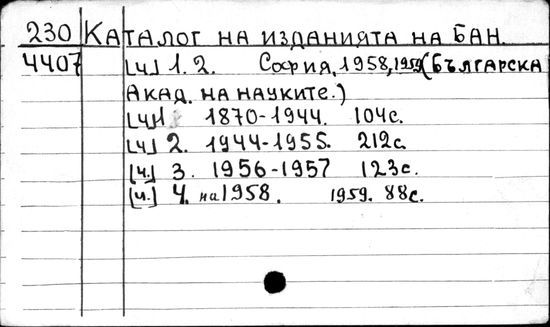 230 Каталог на изданията на БАН.
4407 [ч] 1. 2. София, 1958, 1959 (Българска
Акад. на науките.)
[ч] 1. 1870-1944. 104с.
[ч] 2. 1944-1955. 212с.
[ч.] 3. 1956-1957 123с.
[ч.] 4. на 1958. 1959. 88с.